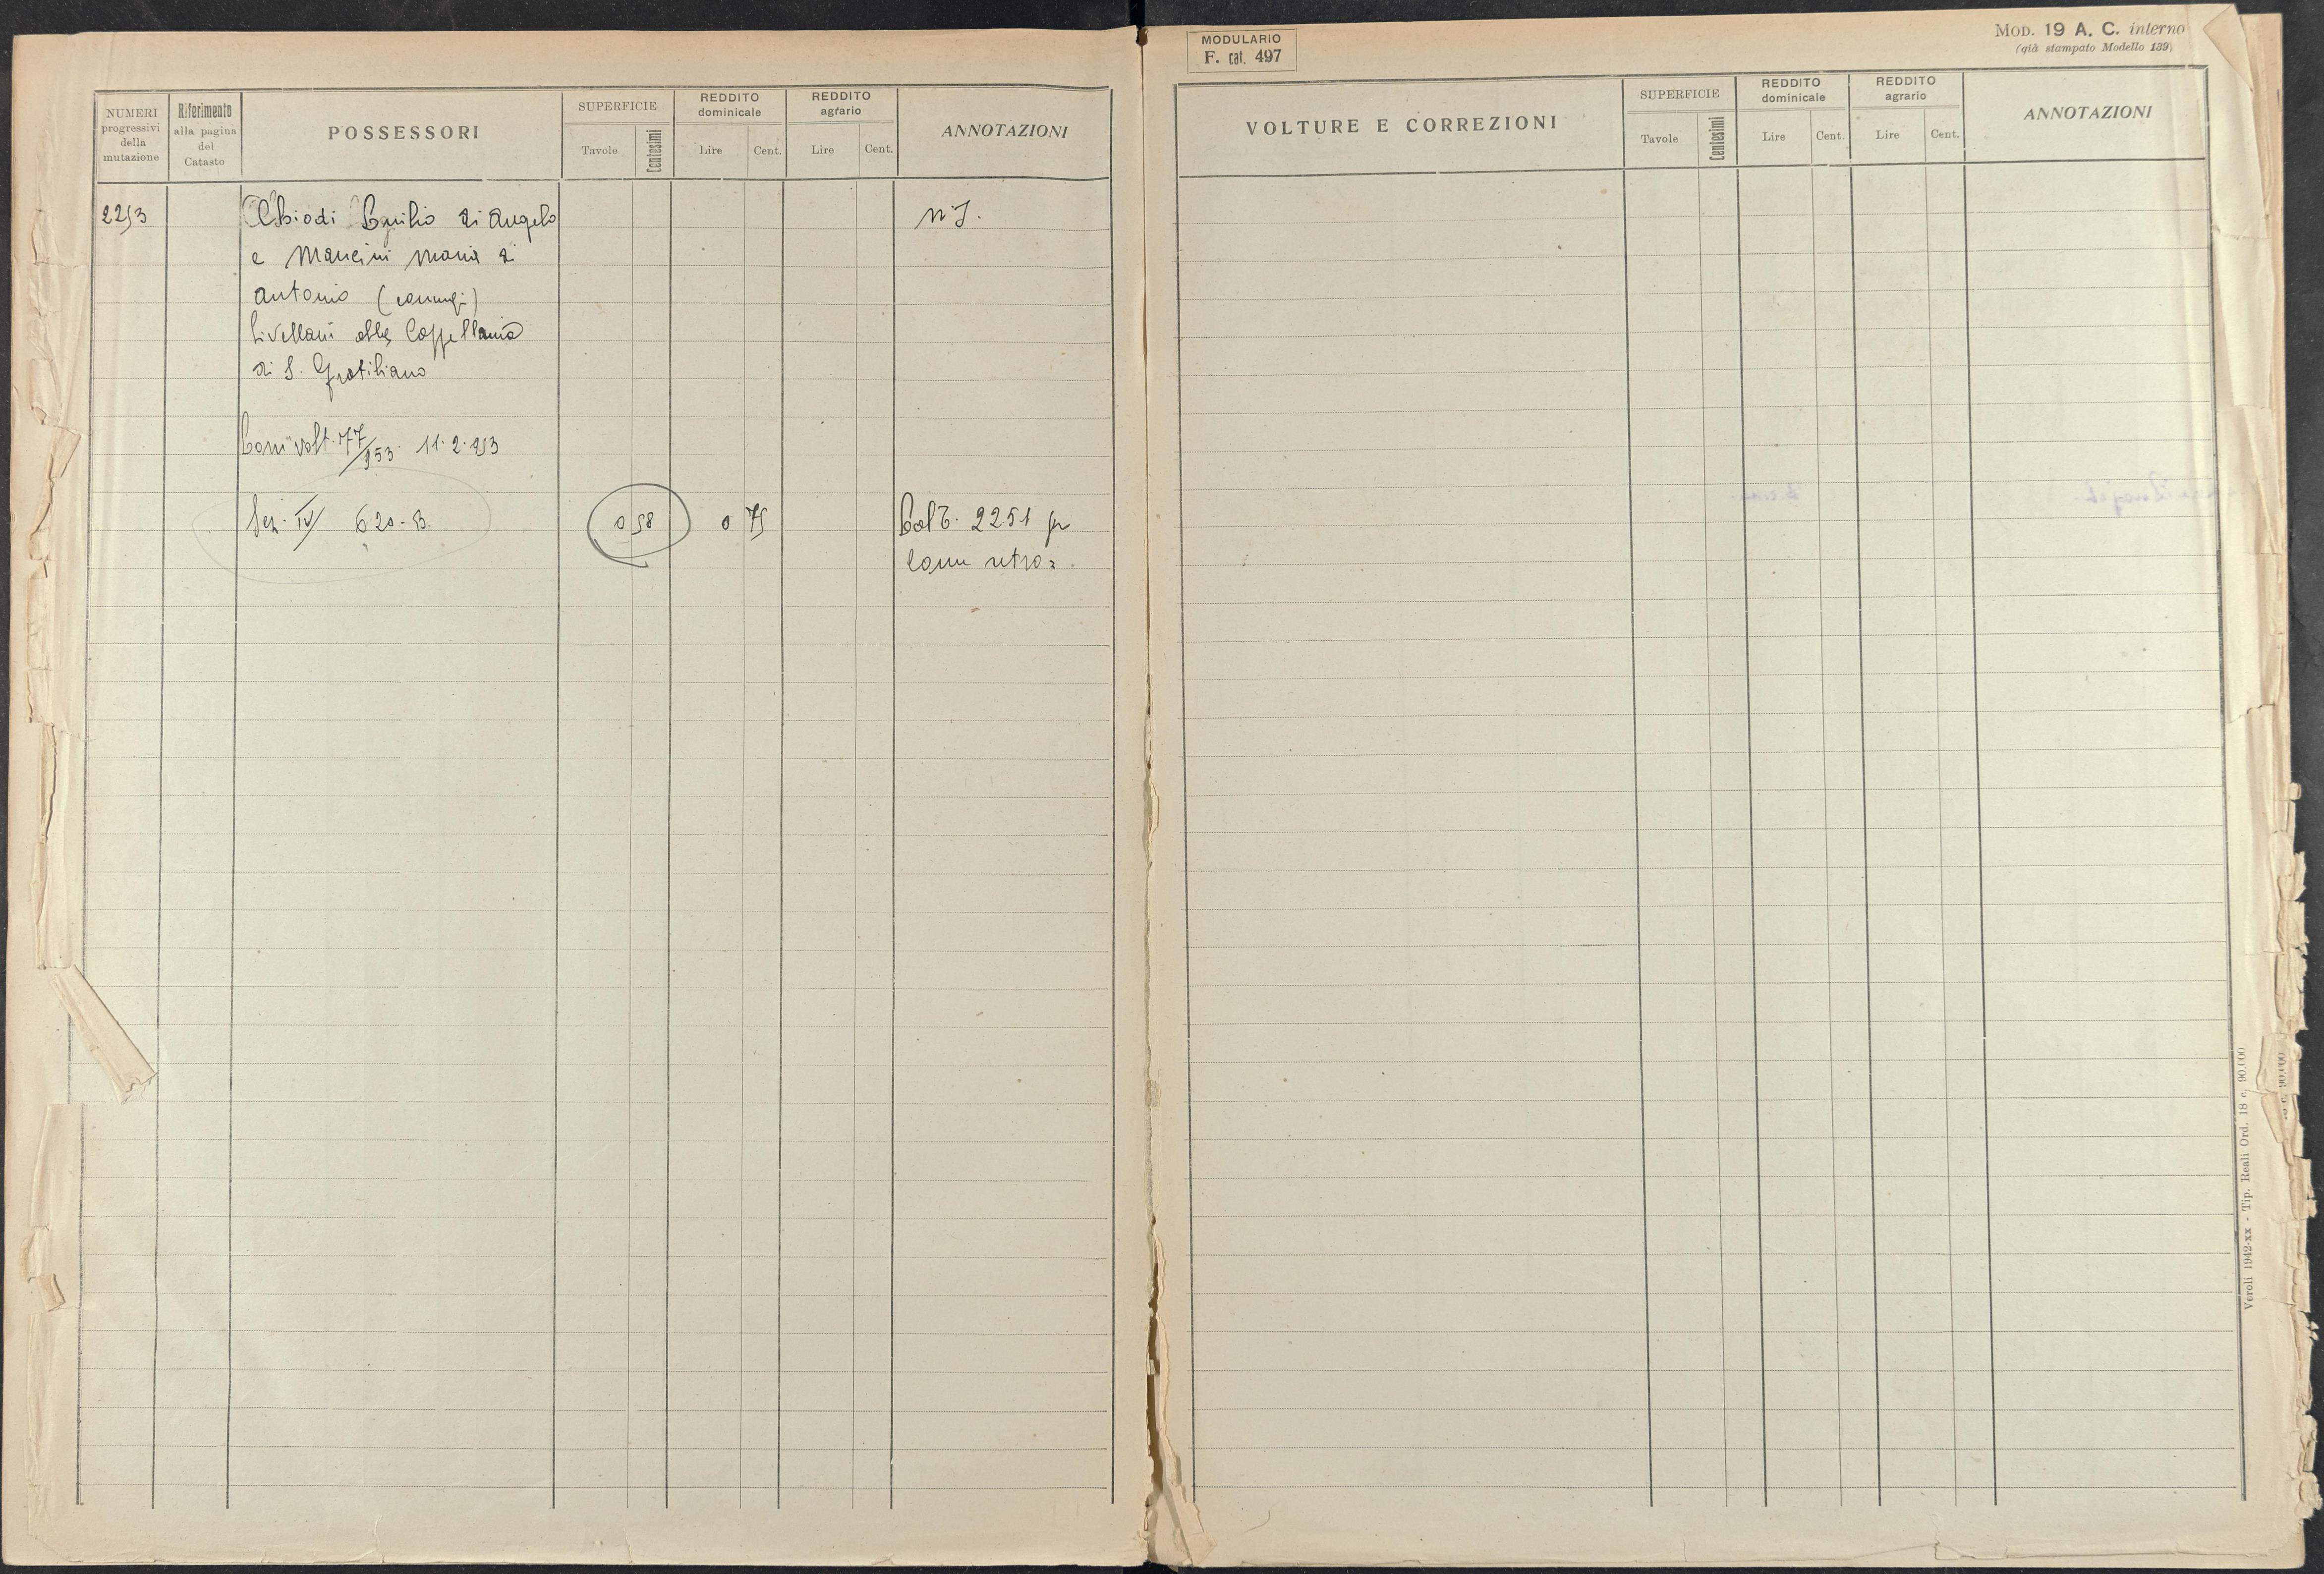 NUMERI progressivi della mutazione
Riferimento alla pagina del Catasto
POSSESSORI
SUPERFICIE
Tavole
Centesimi
REDDITO dominicale
Lire
Cent.
REDDITO agrario
Lire
Cent.
ANNOTAZIONI
2253
Chiodi Emilio di Angelo
e Mancini Maria di
Antonio (coniugi)
livellari alla Cappellania
di S. Gratiliano
volt. 77/953 11.2.953
Sez. IV 620-
0 58
0 75
2251
come retro
MODULARIO
F. cat. 497
MOD. 19 A. C. interno
(già stampato Modello 139)
VOLTURE E CORREZIONI
SUPERFICIE
Tavole
Centesimi
REDDITO dominicale
Lire
Cent.
REDDITO agrario
Lire
Cent.
ANNOTAZIONI
Veroli 1942-XX - Tip. Reali Ord. 18 c. 90.000